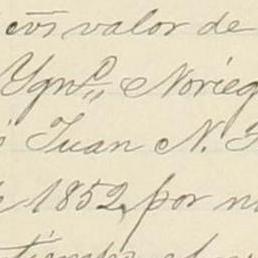 cvs valor de
Ygn.º Norieg
Juan N.
1852, por